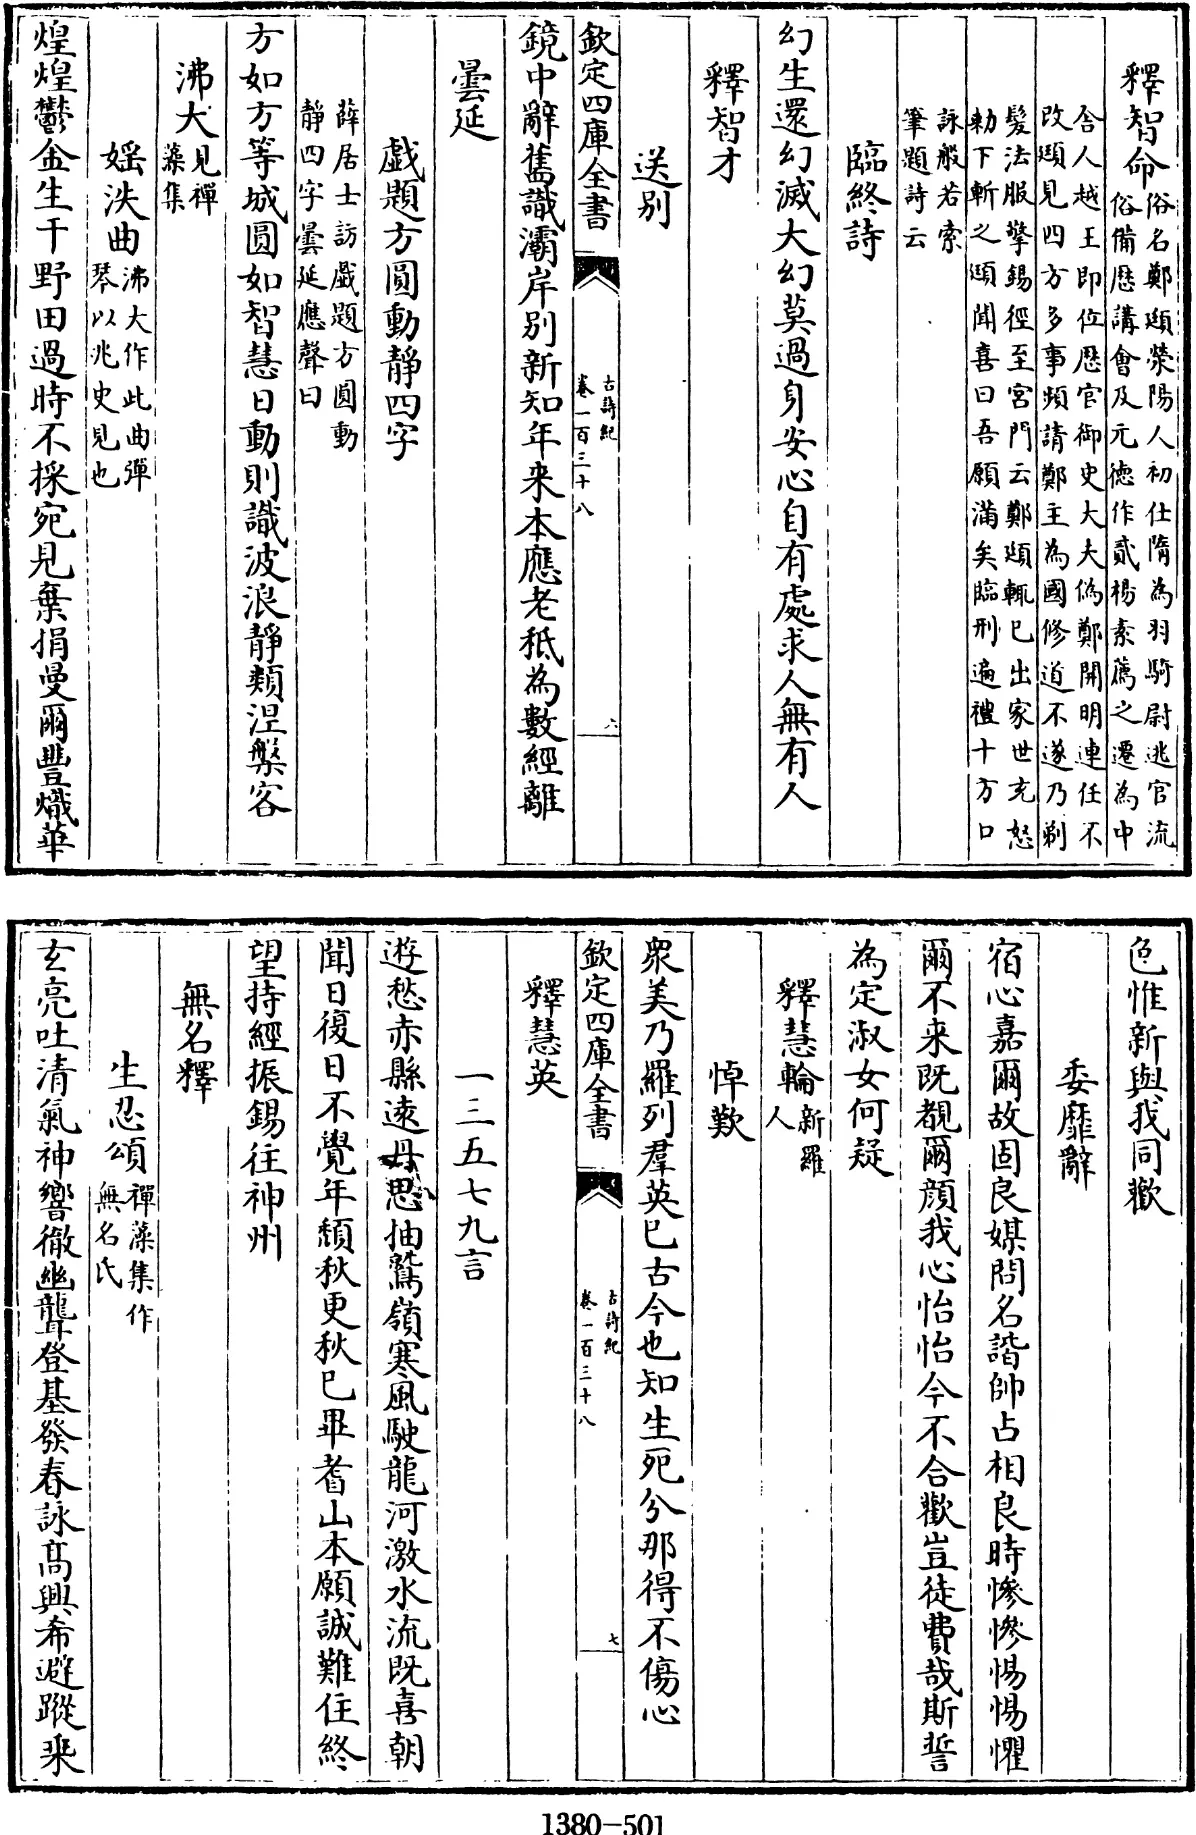 釋智命俗名鄭頲滎陽人初仕隋為羽騎尉逃官流
俗備歴講會及元德作貳楊素薦之遷為中
舎人越王即位歴官御史大夫偽鄭開明連任不
改頲見四方多事頻請鄭主為國修道不遂乃剃
髪法服擎錫徑至宮門云鄭頲輒已出家世充怒
勅下斬之頲聞喜曰吾願滿矣臨刑遍禮十方口
詠般若索
筆題詩云
臨終詩
幻生還幻滅大幻莫過身安心自有處求人無有人
釋智才
送别
欽定四庫全書
古詩紀
卷一百三十八
六
鏡中辭舊識灞岸别新知年来本應老秪為數經離
曇延
戯題方圓動靜四字
薛居士訪戯題方圓動
靜四字曇延應聲曰
方如方等城圓如智慧日動則識波浪靜類涅槃客
沸大見禪
藻集
婬泆曲沸大作此曲彈
琴以兆史見也
煌煌鬱金生于野田過時不採宛見棄捐曼爾豐熾華
色惟新與我同歡
委靡辭
宿心嘉爾故固良媒問名諧帥占相良時慘慘惕惕懼
爾不来既覩爾顔我心怡怡今不合歡豈徒費哉斯誓
為定淑女何疑
釋慧輪新羅
人
悼歎
衆美乃羅列羣英已古今也知生死分那得不傷心
欽定四庫全書
古詩紀
卷一百三十八
七
釋慧英
一三五七九言
遊愁赤縣逺丹思抽鷲嶺寒風駛龍河激水流既喜朝
聞日復日不覺年頽秋更秋已畢耆山本願誠難住終
望持經振錫往神州
無名釋
生忍頌禪藻集作
無名氏
玄亮吐清氣神響徹幽聾登基發春詠髙興希避蹤乗
1380-501